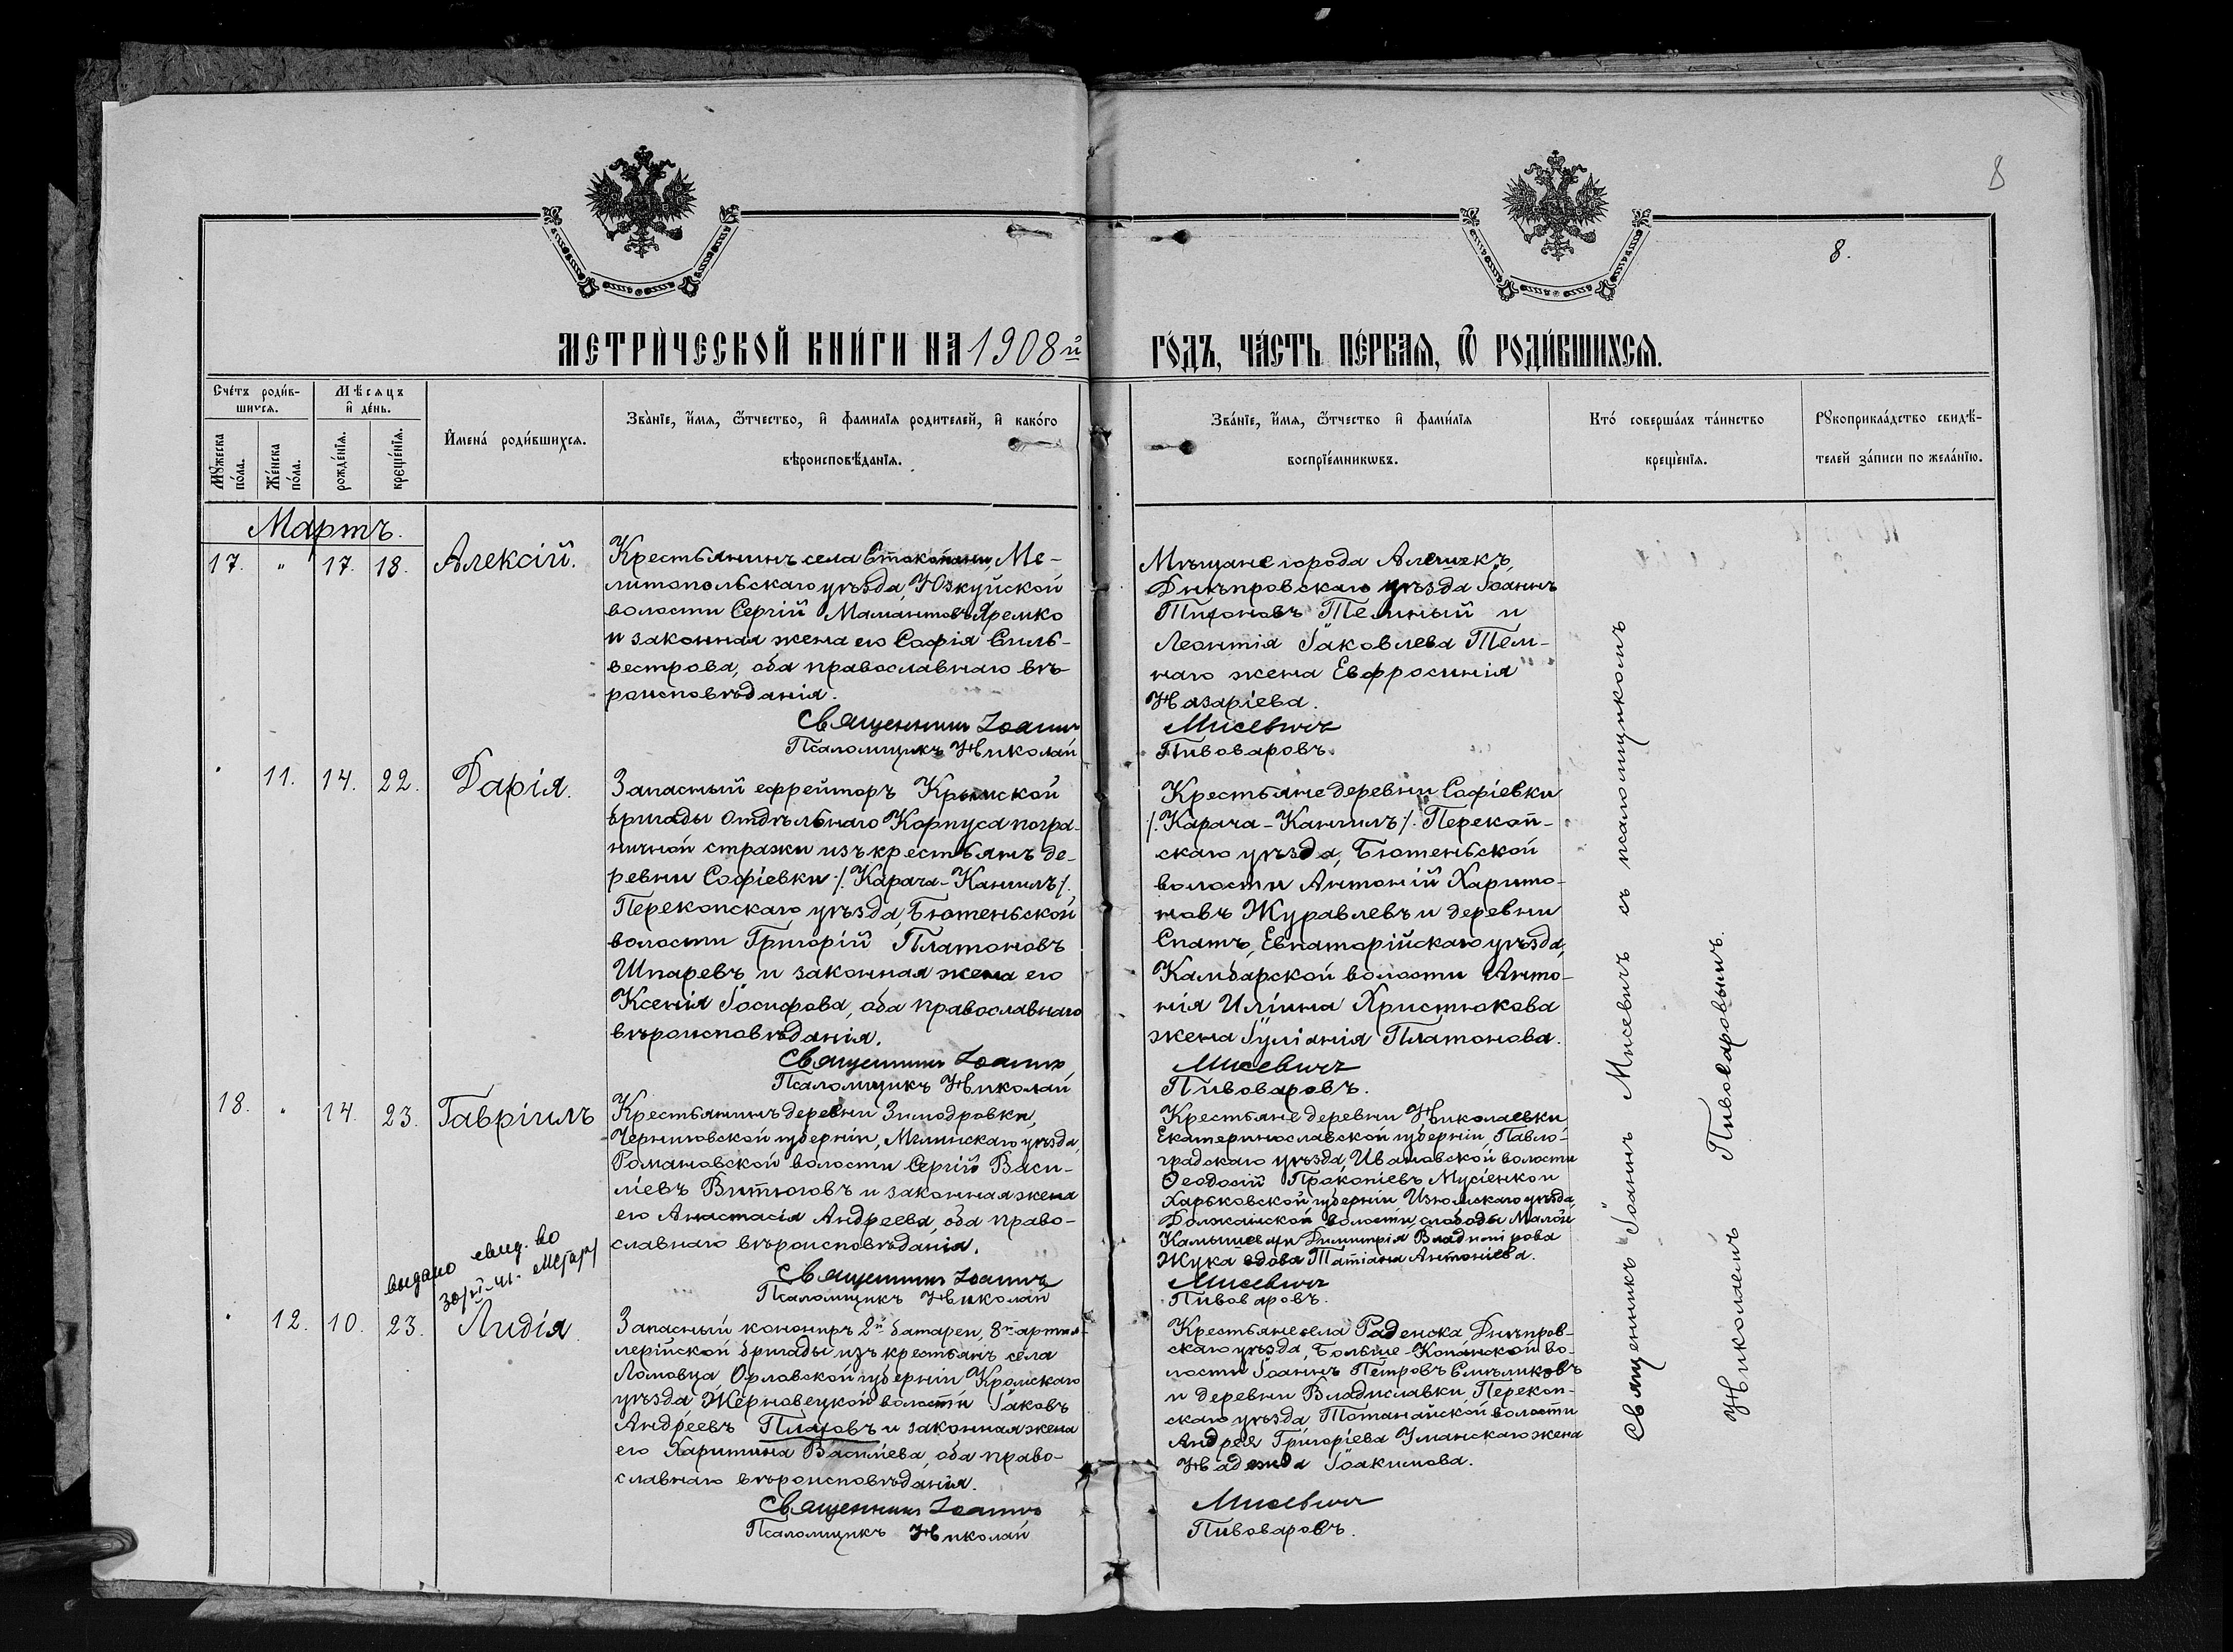 8
8.
МЕТРИ́ЧЕСКОЙ КНИ́ГИ НА 1908 й
ГО́ДЪ, ЧА́СТЬ ПЕ́РВАЯ, Ѿ РОДИ́ВШИХСЯ.
Сче́тъ роди́в-
шихся.
Мѣсяцъ
и де́нь.
Мꙋ́жеска
по́ла.
Же́нска
по́ла.
рожде́нїя.
креще́нїя.
Имена́ роди́вшихся.
Зва́нїе, и́мя, ѻ́тчество, и фамилїя родителей, и како́го
вѣроисповѣ́данїя.
Зва́нїе, и́мя, ѻ́тчество и фами́лїя
воспрїе́мникѡвъ.
Кто́ соверша́лъ та́инство
креще́нїя.
Рꙋкоприкла́дство свидѣ́-
телей за́писи по жела́нїю.
Мартъ.
17. " 17. 18. Алексій.
Крестьянинъ села Ме-
литопольскаго уѣзда, Юзкуйской
волости Сергій Мамантовъ Яремко
и законная жена его Софія Силь-
вестрова, оба православнаго вѣ-
роисповѣданія.
Священникъ Іоаннъ
Псаломщикъ Николай
Мѣщане города Алешекъ,
Днѣпровскаго уѣзда Іоаннъ
Тихоновъ Темный и
Леонтія Іаковлева Тем-
наго жена Евфросинія
Назаріева.
Мисевичъ
Пивоваровъ.
11. 14. 22. Дарія.
Запасный ефрейторъ Крымской
бригады Отдѣльнаго Корпуса погра-
ничной стражи изъ крестьянъ де-
ревни Софіевки /. Карача-Кангилъ /.
Перекопскаго уѣзда, Бютеньской
волости Григорій Платоновъ
Шпаревъ и законная жена его
Ксенія Іосифова, оба православнаго
вѣроисповѣданія.
Священникъ Іоаннъ
Псаломщикъ Николай
Крестьяне деревни Софіевки
/. Карача-Кангилъ /. Перекоп-
скаго уѣзда, Бютеньской
волости Антоній Харито-
новъ Журавлевъ и деревни
Спатъ, Евпаторійскаго уѣзда,
Камбарской волости Анто-
нія Иліина Христюкова
жена Іуліанія Платонова.
Мисевичъ
Пивоваровъ.
18. " 14. 23. Гавріилъ
Крестьянинъ деревни Зимодровки,
Черниговской губерніи, Мглинскаго уѣзда,
Романовской волости Сергій Васи-
ліевъ Витюговъ и законная жена
его Анастасія Андреева, оба право-
славнаго вѣроисповѣданія.
Священникъ Іоаннъ
Псаломщикъ Николай
Крестьяне деревни Николаевки
Екатеринославской губерніи, Павло-
градскаго уѣзда, Ивановской волости
Ѳеодосій Прокопіевъ Мусіенко и
Харьковской губерніи Изюмскаго уѣзда,
Должанской волости, слободы Малой
Камышевахи Димитрія Владимірова
Жука вдова Татіана Антоніева.
Мисевичъ
Пивоваровъ.
выдано свид. во
12. 10. 23. Лидія
Запасный конониръ 2й батареи, 8й артил-
лерійской бригады изъ крестьянъ села
Ломовца, Орловской губерніи Кромскаго
уѣзда Жерновецкой волости Іаковъ
Андреевъ Плаховъ и законная жена
его Харитина Василіева, оба право-
славнаго вѣроисповѣданія.
Священникъ Іоаннъ
Псаломщикъ Николай
Крестьяне села Раденска, Днѣпров-
скаго уѣзда, Больше-Копанской во-
лости Іоаннъ Петровъ
и деревни Владиславки, Перекоп-
скаго уѣзда Тотанайской волости
Андрея Григоріева Уманскаго жена
Надежда Іоакимова.
Мисевичъ
Пивоваровъ.
Священникъ Іоаннъ Мисевичъ съ псаломщикомъ
Николаемъ Пивоваровымъ.